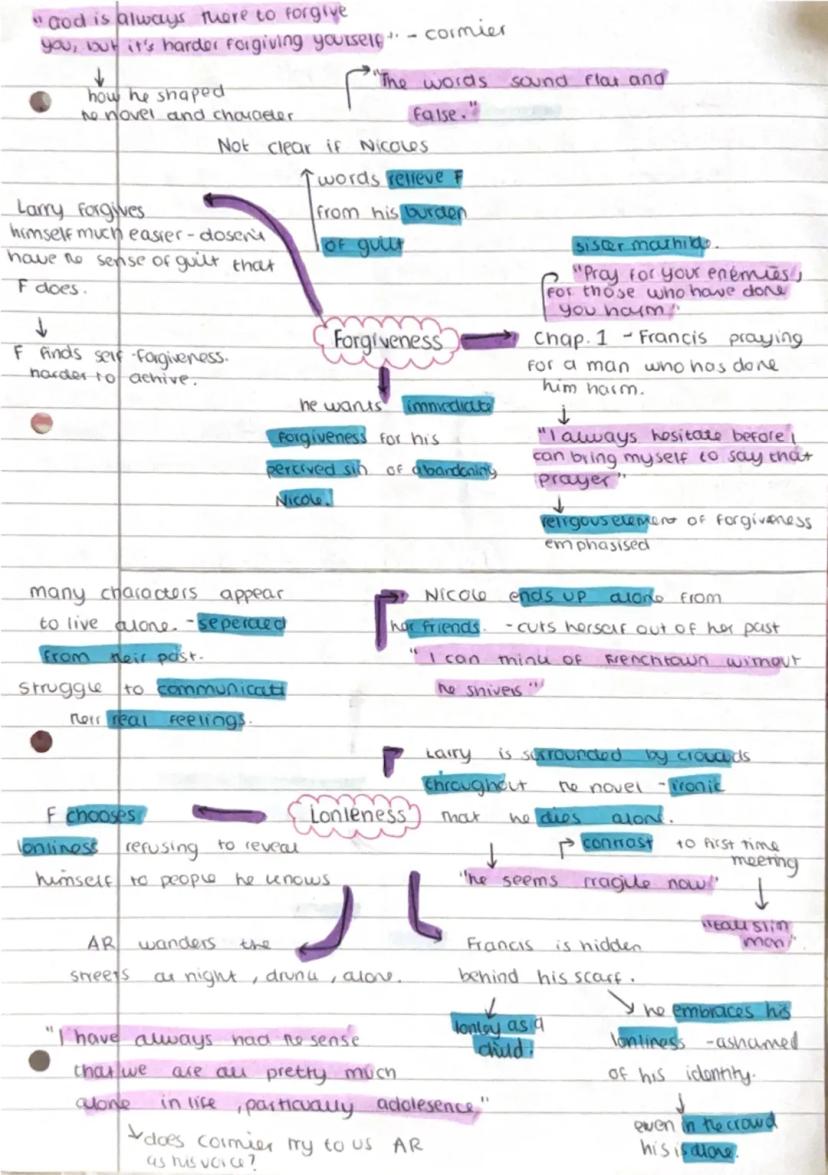 "God is always there to forgive
you, but it's harder forgiving yourself". - cormier
how he shaped
the novel and character
"The words sound flat and
false."
Not clear if Nicoles
words relieve F
from his burden
of guilt
Larry forgives
himself much easier - dosen't
have the sense of guilt that
F does.
F finds self-forgiveness.
harder to achive.
Forgiveness
sister mathilde.
"Pray for your enemies,
for those who have done
you harm."
Chap. 1 - Francis praying
for a man who has done
him harm.
"I always hesitate before I
can bring myself to say that
prayer"
religous element of forgiveness
emphasised
he wants immediate
forgiveness for his
percived sin of abandoning
Nicole.
many characters appear
to live alone. - seperated
from their past.
struggle to communicate
their real feelings.
Nicole ends up alone from
her friends. - cuts herself out of her past
"I can think of Frenchtown without
the shivers"
Larry is surrounded by crowds
throughout the novel - ironic
that he dies alone.
contrast to first time
meeting
"he seems fragile now"
"tall slim
man"
Lonleness
F chooses
lonliness refusing to reveal
himself to people he knows
AR wanders the
streets at night, drunk, alone.
Francis is hidden
behind his scarf.
lonley as a
child.
he embraces his
lonliness - ashamed
of his identity.
even in the crowd
his is alone.
"I have always had the sense
that we are all pretty much
alone in life, particually adolesence"
does cormier try to us AR
as his voice?